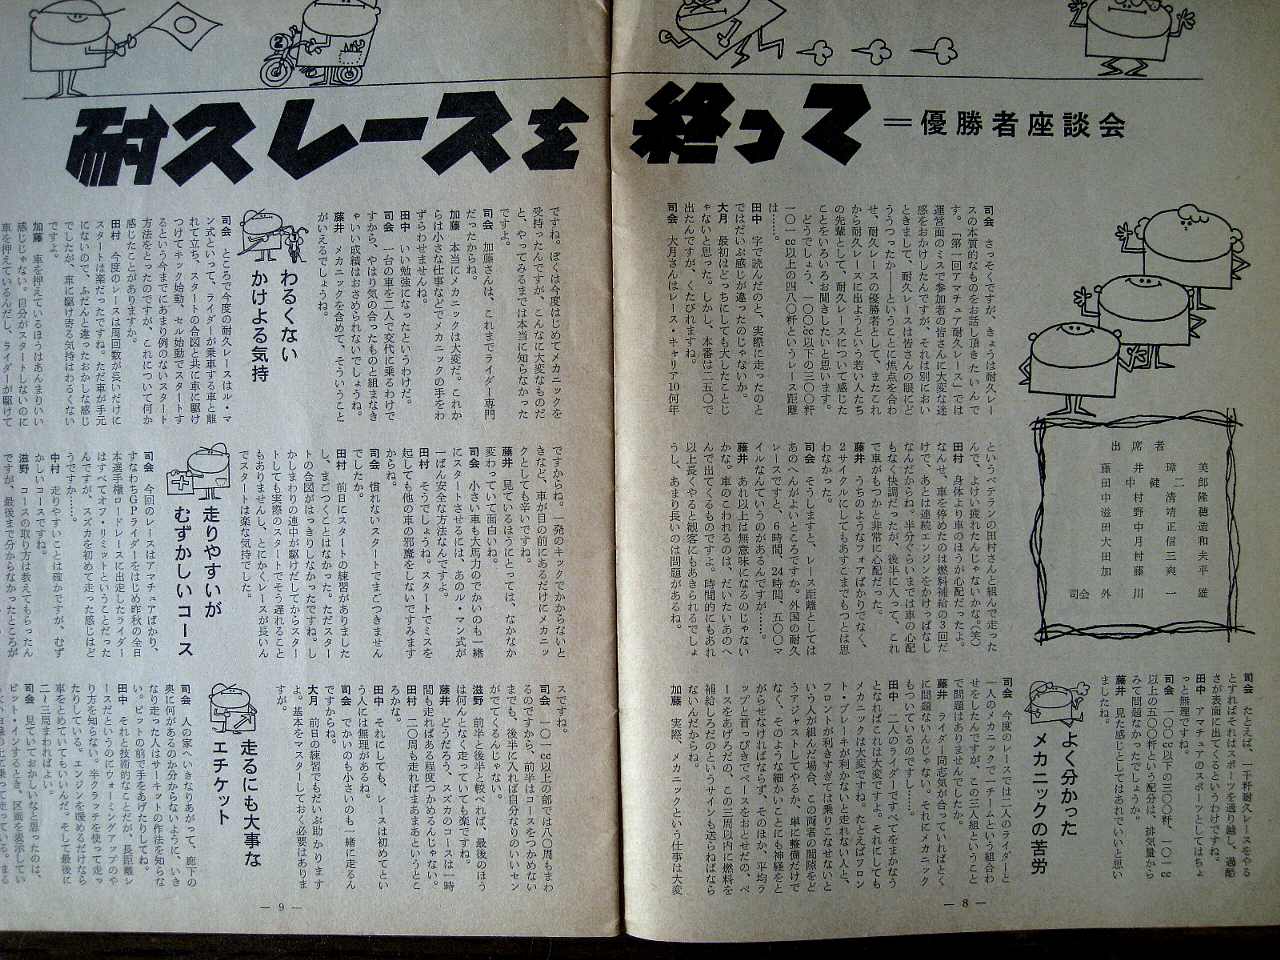 耐久レースを終って
=優勝者座談会
出席者
藤井璋美
田中健二郎
司会　外川一雄
司会　さっそくですが、きょうは耐久レー
スの本質的なものをお話し頂きたいんで
す。「第一回アマチュア耐久レース」では
運営面のミスで参加者の皆さんに大変な迷
惑をおかけしたんですが、それは別におい
ときまして、耐久レースは皆さんの眼にど
ううつったか――ということに焦点を合わ
せ、耐久レースの優勝者として、またこれ
から耐久レースに出ようという若い人たち
の先輩として、耐久レースについて感じた
ことをいろいろお聞きしたいと思います。
どうでしょう、一〇〇cc以下の三〇〇粁
一〇一cc以上の四八〇粁というレース距離
は……。
田中　字で読んだのと、実際に走ったのと
ではだいぶ感じが違ったのじゃないか。
大月　最初はどっちにしても大したことじ
ゃないと思った。しかし、本番は二五〇で
出たんですが、くたびれますね。
司会　大月さんはレース・キャリス10何年
というベテランの田村さんと組んで走った
んで、よけい疲れたんじゃないかな。（笑）
田村　身体より車のほうが心配だったよ。
なんせ、車を停めたのは燃料補給の3回だ
けで、あとは連続エンジンをかけっぱなし
なんだからね。半分ぐらいまでは車の心配
もなく快調だったが、後半に入って、これ
で車がもつかと非常に心配だった。
藤井　うちのようなフォアばかりでなく、
2サイクルにしてもあすこまでもつとは思
わなかった。
司会　そうしますと、レース距離としては
あのへんがよいところですか。外国の耐久
レースですと、6時間、24時間、五〇〇マ
イルなんていうのがあるんですが……。
藤井　あれ以上は無意味になるのじゃない
かな。車のこわれるのは、だいたいあのへ
んで出てくるものですよ。時間的にもあれ
以上長くやると観客にもあきられるでしょ
うし、あまり長いのは問題があるね。
司会　たとえば、一千粁耐久レースをやる
とすればそれはスポーツを通り越し、過酷
さが表面に出てくるというわけですね。
田中　アマチュアのスポーツとしてはちょ
っと無理ですね。
司会　一〇〇cc以下の三〇〇粁、一〇一cc
以上の五〇〇粁という配分は、排気量から
みて問題なかったでしょうか。
藤井　見た感じとしてはあれでいいと思い
ましたね。
よく分かった
メカニックの苦労
司会　今度のレースでは二人のライダーと
一人のメカニックで一チームという組合わ
せをしたんですが、この三人組ということ
で問題はありませんでしたか。
藤井　ライダー同志気が合っていればとく
に問題ないんじゃない。それにメカニック
もついているのですし……。
田中　二人のライダーですべてをまかなう
となればこれは大変ですよ。それにしても
メカニックは大変ですね。たとえばフロン
ト・ブレーキが利かないと走れない人と、
フロントが利きすぎては乗りこなせないと
いう人が組んだ場合、この両者の間隙をど
うアジャストしてやるか、単に整備だけで
なく、そのような細かいことにも神経をと
がらせなければならず、そのほか、平均ラ
ップと首っぴきでペースをおとせだの、ペ
ースをあげろだの、この三周以内に燃料を
補給しろだのというサインも送らねばなら
ないんだからね。
加藤　実際、メカニックという仕事は大変
― 8 ―
ですね。ぼくは今度はじめてメカニックを
受持ったんですが、こんなに大変なものだ
と、やってみるまでは本当に知らなかった
ですよ。
司会　加藤さんは、これまでライダー専門
だったからね。
加藤　本当にメカニックは大変だ。これか
らは小さな仕事などでメカニックの手をわ
ずらわせませんね。
田中　いい勉強になったというわけだ。
司会　一台の車を二人で交代に乗るわけで
すから、やはり気の合ったものと組まなき
ゃいい成績はおさめられないでしょうね。
藤井　メカニックを含めて、そういうこと
がいえるでしょうね。
わるくない
かけよる気持
司会　ところで今度の耐久レースはル・マ
ン式といって、ライダーが乗車する車と離
れて立ち、スタートの合図と共に車に駆け
つけてキック始動、セル始動でスタートす
るという今までにあまり例のないスタート
方法をとったのですが、これについて何か
感じたことがありますか。
田村　今度のレースは周回数が長いだけに
スタートは楽だったですね。ただ車が手元
にないので、ふだんと違ったおかしな感じ
でしたが、車に駆け寄る気持はわるくない
ですよ。
加藤　車を押えているほうはあんまりいい
感じじゃない。自分がスタートしないのに
車を押えているんだし、ライダーが駆けて
ですからね。一発のキックでかからないと
きなど、車が目の前にあるだけにメカニッ
クとしても辛いですね。
藤井　見ているほうにとっては、なかなか
変わっていて面白いね。
司会　小さい車も大馬力のでかいのも一緒
にスタートさせるには、あのル・マン式が
一ばん安全な方法なんですよ。
田村　そうでしょうね。スタートでミスを
起しても他の車の邪魔をしないですみます
からね。
司会　慣れないスタートでまごつきません
でしたか。
田村　前日にスタートの練習がありました
し、まごつくことはなかった。ただスター
トの合図がはっきりしなかったですね。し
かしまわりの連中が駆けだしてからスター
トしても実際のスタートでそう遅れること
もありませんし、とにかくレースが長いん
でスタートは楽な気持でした。
走りやすいが
むずかしいコース
司会　今回のレースはアマチュアばかり、
すなわちPライダーをはじめ昨秋の全日
本選手権ロードレースに出走したライダー
はすべてオフ・リミットということだった
んですが、スズカを初めて走った感じはど
うですか……。
中村　走りやすいことは確かですが、むず
かしいコースですね。
滋野　コースの取り方は教えてもらったん
ですが、最後まで分からなかったところが
スですね。
司会　一〇一cc以上の部では八〇周もまわ
るのですから、前半はコースをつかめない
までも、後半に入れば自分なりのいいセン
がでてくるんじゃない。
滋野　前半と後半と較べれば、最後のほう
は何んとなく走っていても楽ですね。
藤井　どうだろう、スズカのコースは一時
間も走ればある程度つかめるんじゃない。
田村　二〇周も走ればまあまあというとこ
ろかな。
田中　それにしても、レースは初めてとい
う人には無理があるね。
司会　でかいのも小さいのも一緒に走るん
ですからね。
大月　前日の練習でもだいぶ助かります
よ。基本をマスターしておく必要はありま
すが。
走るにも大事な
エチケット
司会　人の家へいきなりあがって、廊下の
奥に何があるのか分からないように、いき
なり走った人はサーキットの作法を知らな
い。ピットの前で手をあげたりしてね。
田中　それと技術的なことだが、長距離レ
ースだというのにウォーミングアップのや
り方を知らない。半クラッチを使って走っ
たりしている。エンジンを暖めるだけなら
車をとめていてもいいんだ。そして最後に
二～三周まわればよい。
司会　見ていておかしいなと思ったのは、
ピット・インするとき、区画を表示してい
― 9 ―